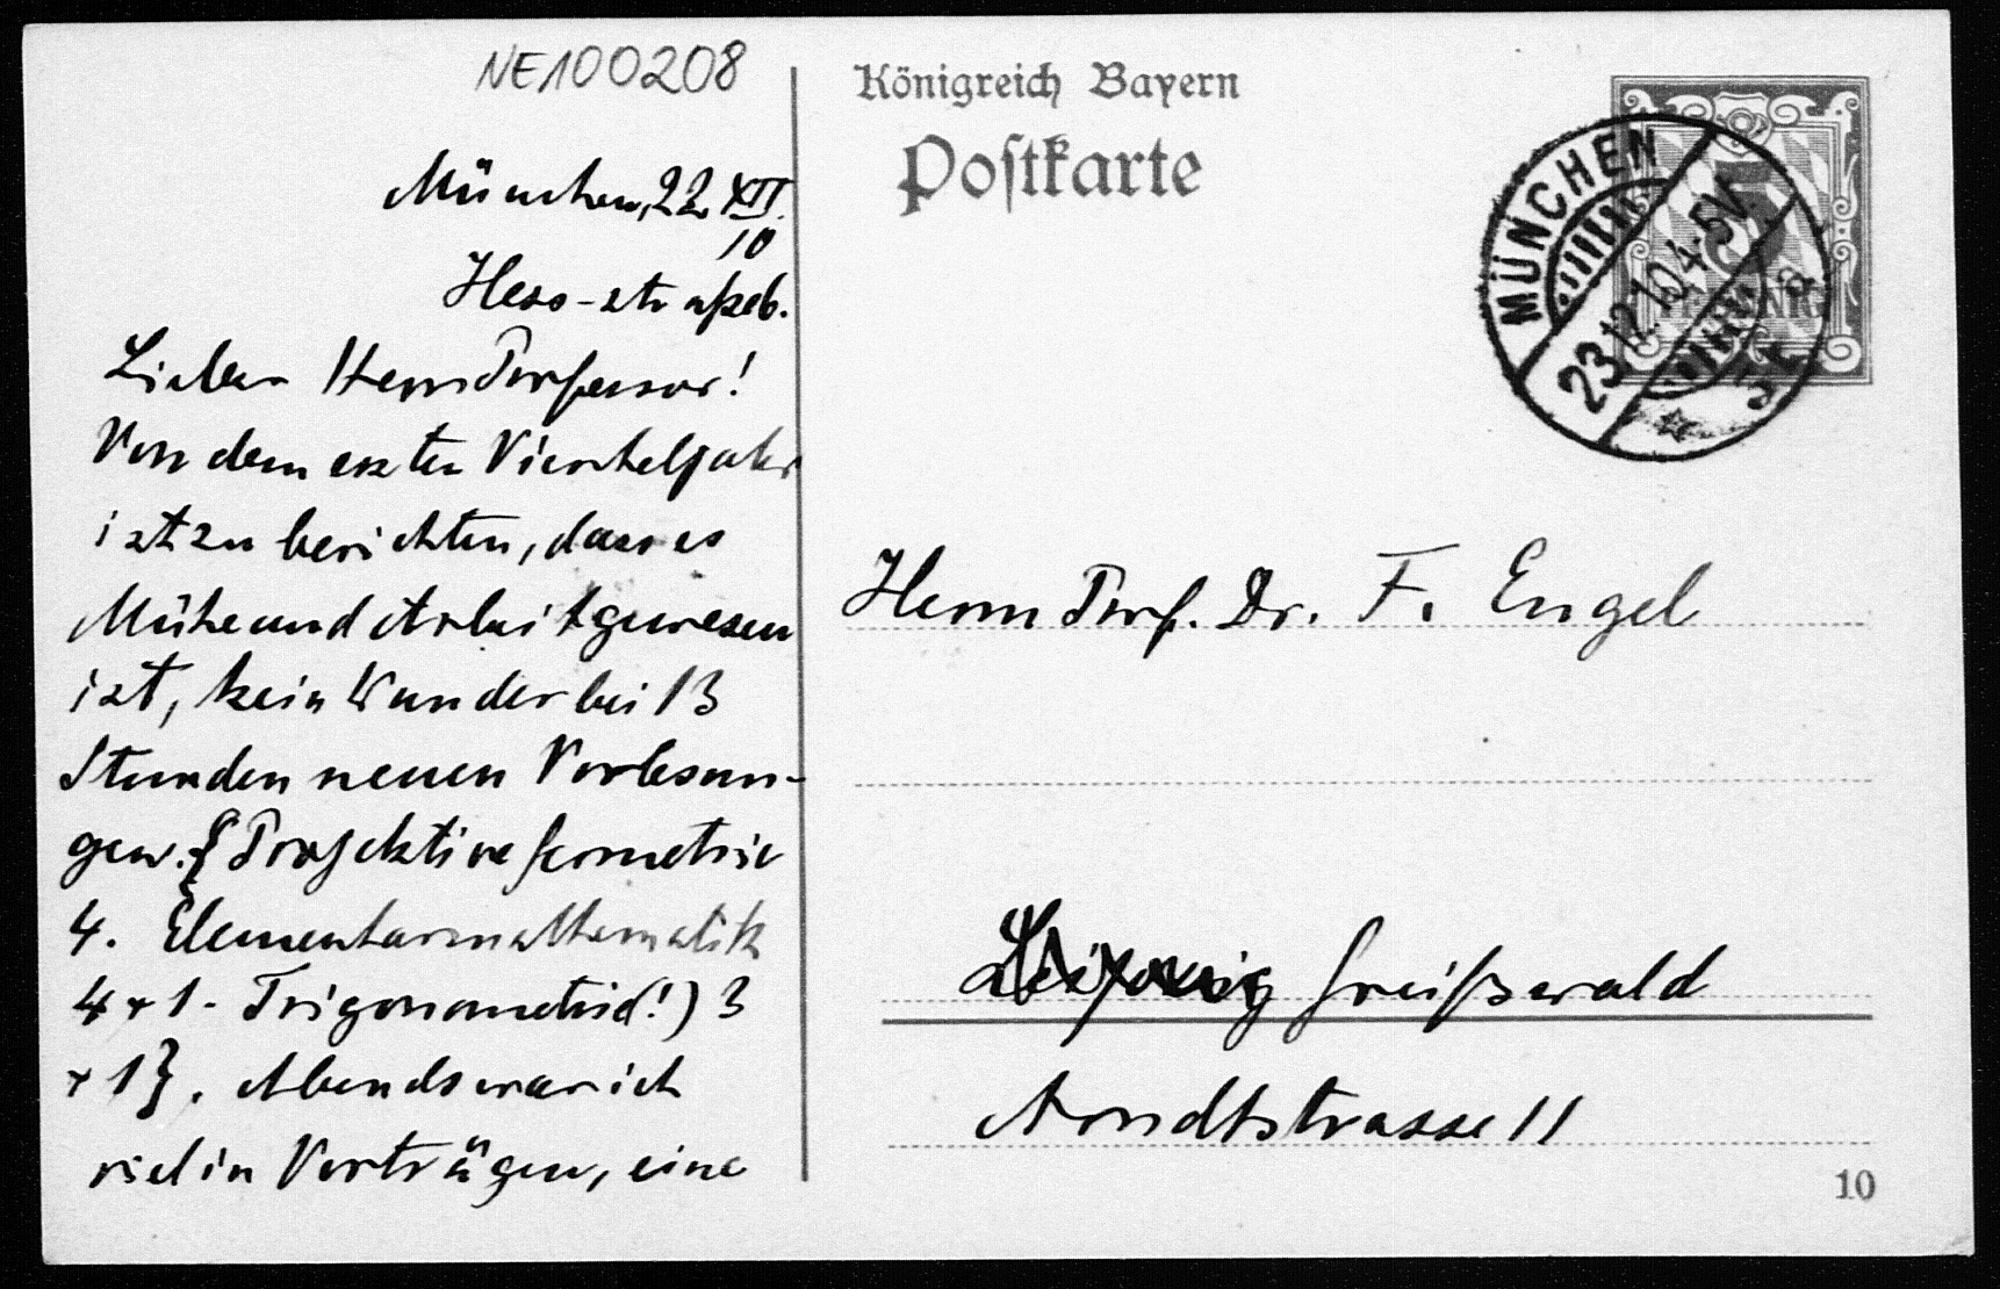 NE100208
München, 22 XII.
10
Hess-straße 6.
Lieber Herr Professor!
Von dem ersten Vierteljahr
ist zu berichten, dass es
Mühe und Arbeit gewesen
ist, kein Wunder bei 13
Stunden neuen Vorlesun-
gen. {Projektive Geometrie
4. Elementarmathematik
4 + 1 - Trigonometrie(!) 3
+ 1}. Abends war ich
viel in Vorträgen, eine
Königreich Bayern
Postkarte
5
PFENNIG
MÜNCHEN
23.12.10 4-5V.
Herrn Prof. Dr. F. Engel
Leipzig Greifswald
Arndtstrasse 11
10